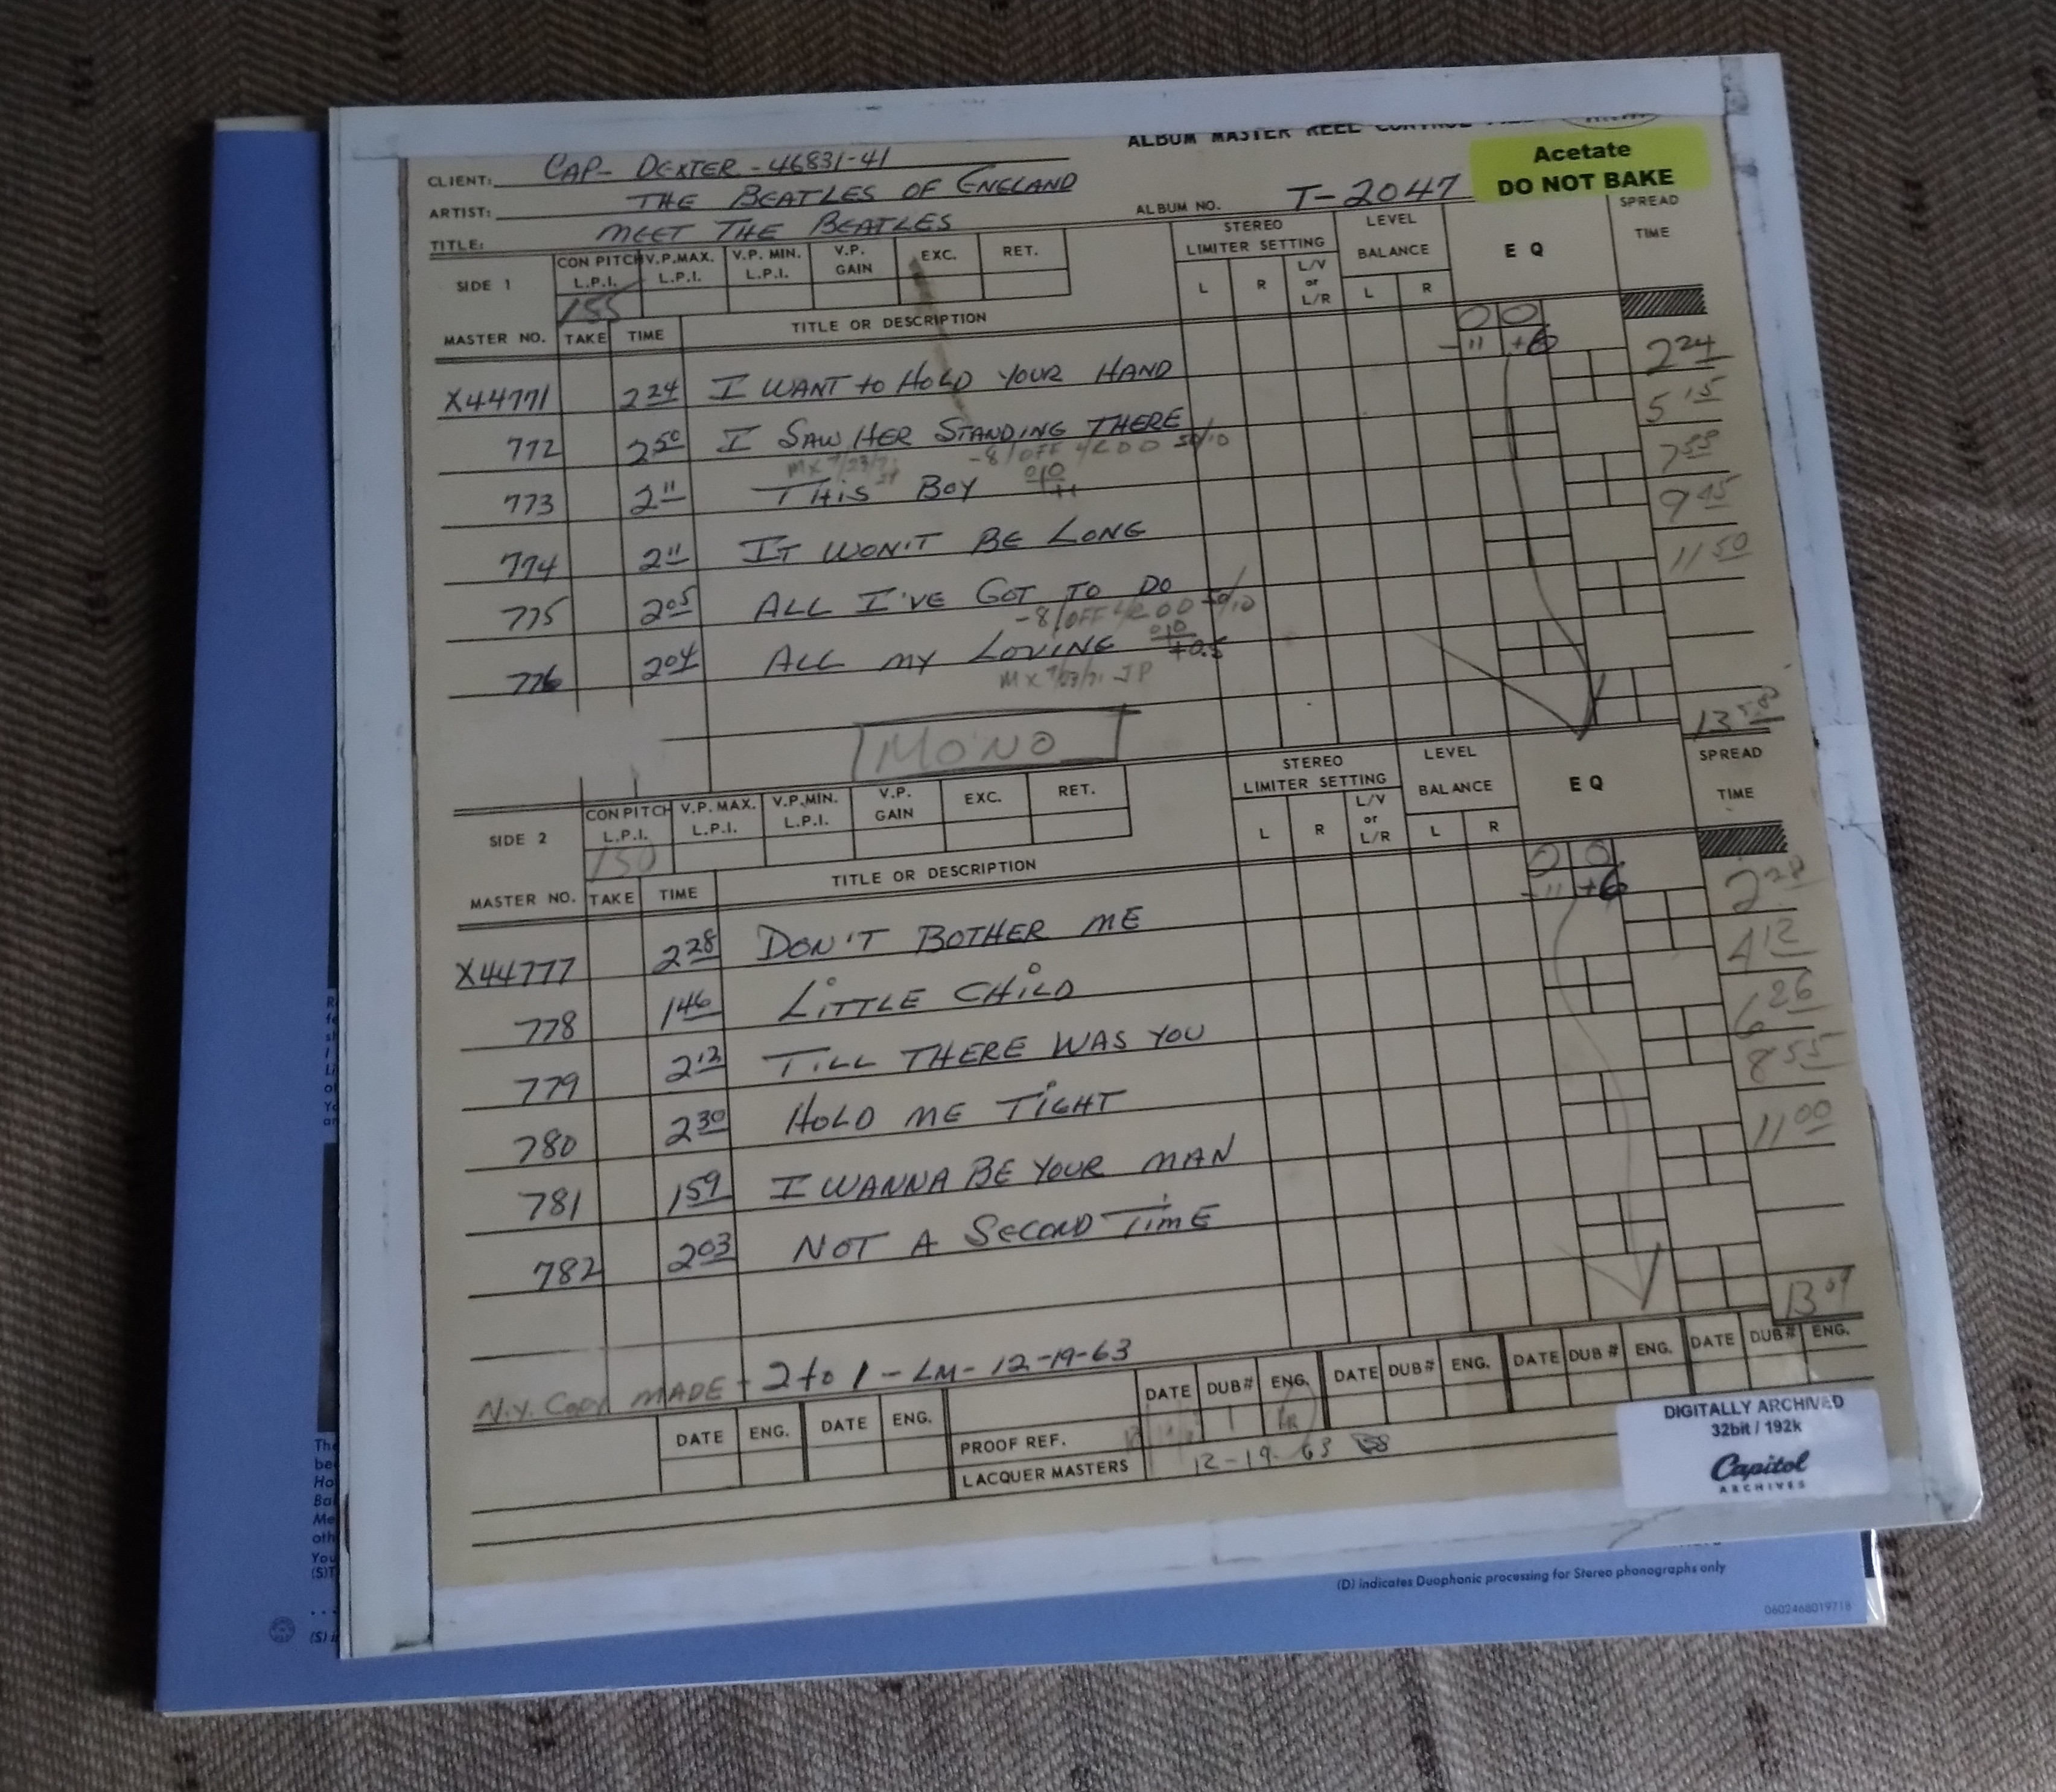 ALBUM MASTER REEL CONTROL
Acetate
DO NOT BAKE
CLIENT: CAP- DEXTER - 46831-41
ARTIST: THE BEATLES OF ENGLAND
TITLE: MEET THE BEATLES
ALBUM NO. T-2047
SIDE 1
CON PITCH L.P.I. V.P.MAX. L.P.I. V.P. MIN. L.P.I. V.P. GAIN EXC. RET.
STEREO LIMITER SETTING L R L/V or L/R LEVEL BALANCE L R E Q SPREAD TIME
155
MASTER NO. TAKE TIME TITLE OR DESCRIPTION
0 0
-11 +6
X44771 2 24 I WANT to HOLD YOUR HAND 2 24
772 2 50 I SAW HER STANDING THERE 5 15
773 2 11 THIS BOY
774 2 11 IT WON'T BE LONG 9 45
775 2 05 ALL I'VE GOT TO DO 11 50
776 2 04 ALL MY LOVING
MX 7/23/71 JP
13 58
MONO
SIDE 2
CON PITCH L.P.I. V.P. MAX. L.P.I. V.P. MIN. L.P.I. V.P. GAIN EXC. RET.
STEREO LIMITER SETTING L R L/V or L/R LEVEL BALANCE L R E Q SPREAD TIME
150
MASTER NO. TAKE TIME TITLE OR DESCRIPTION
0 0
-11 +6
X44777 2 28 DON'T BOTHER ME 2 28
778 1 46 LITTLE CHILD 4 12
779 2 12 TILL THERE WAS YOU 6 26
780 2 30 HOLD ME TIGHT 8 55
781 1 59 I WANNA BE YOUR MAN 11 00
782 2 03 NOT A SECOND TIME
13 09
N.Y. COPY MADE - 2 to 1 - LM - 12-19-63
DATE ENG. DATE ENG.
DATE DUB# ENG. DATE DUB# ENG. DATE DUB # ENG. DATE DUB# ENG.
PROOF REF.
LACQUER MASTERS 12-19-63
DIGITALLY ARCHIVED
32bit / 192k
Capitol
ARCHIVES
(D) indicates Duophonic processing for Stereo phonographs only
0602468019718